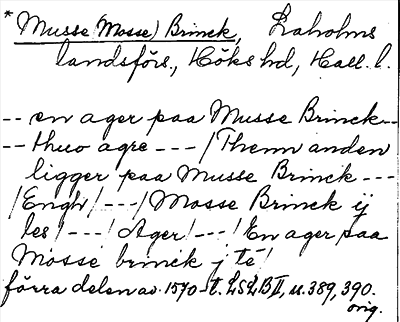 * Musse (Mosse) Brinck, Laholms
landsförs., Höks hd, Hall. l.
-- en ager paa Musse Brinck --
-- thuo agre --- / Thenn anden
ligger paa Musse Brinck ---
/Engh/ --- / Mosse Brinck ij
les / --- / Ager / --- / En ager paa
Mosse brinck j té /
förra delen av 1570-t. LSLB II, u. 389, 390.
orig.